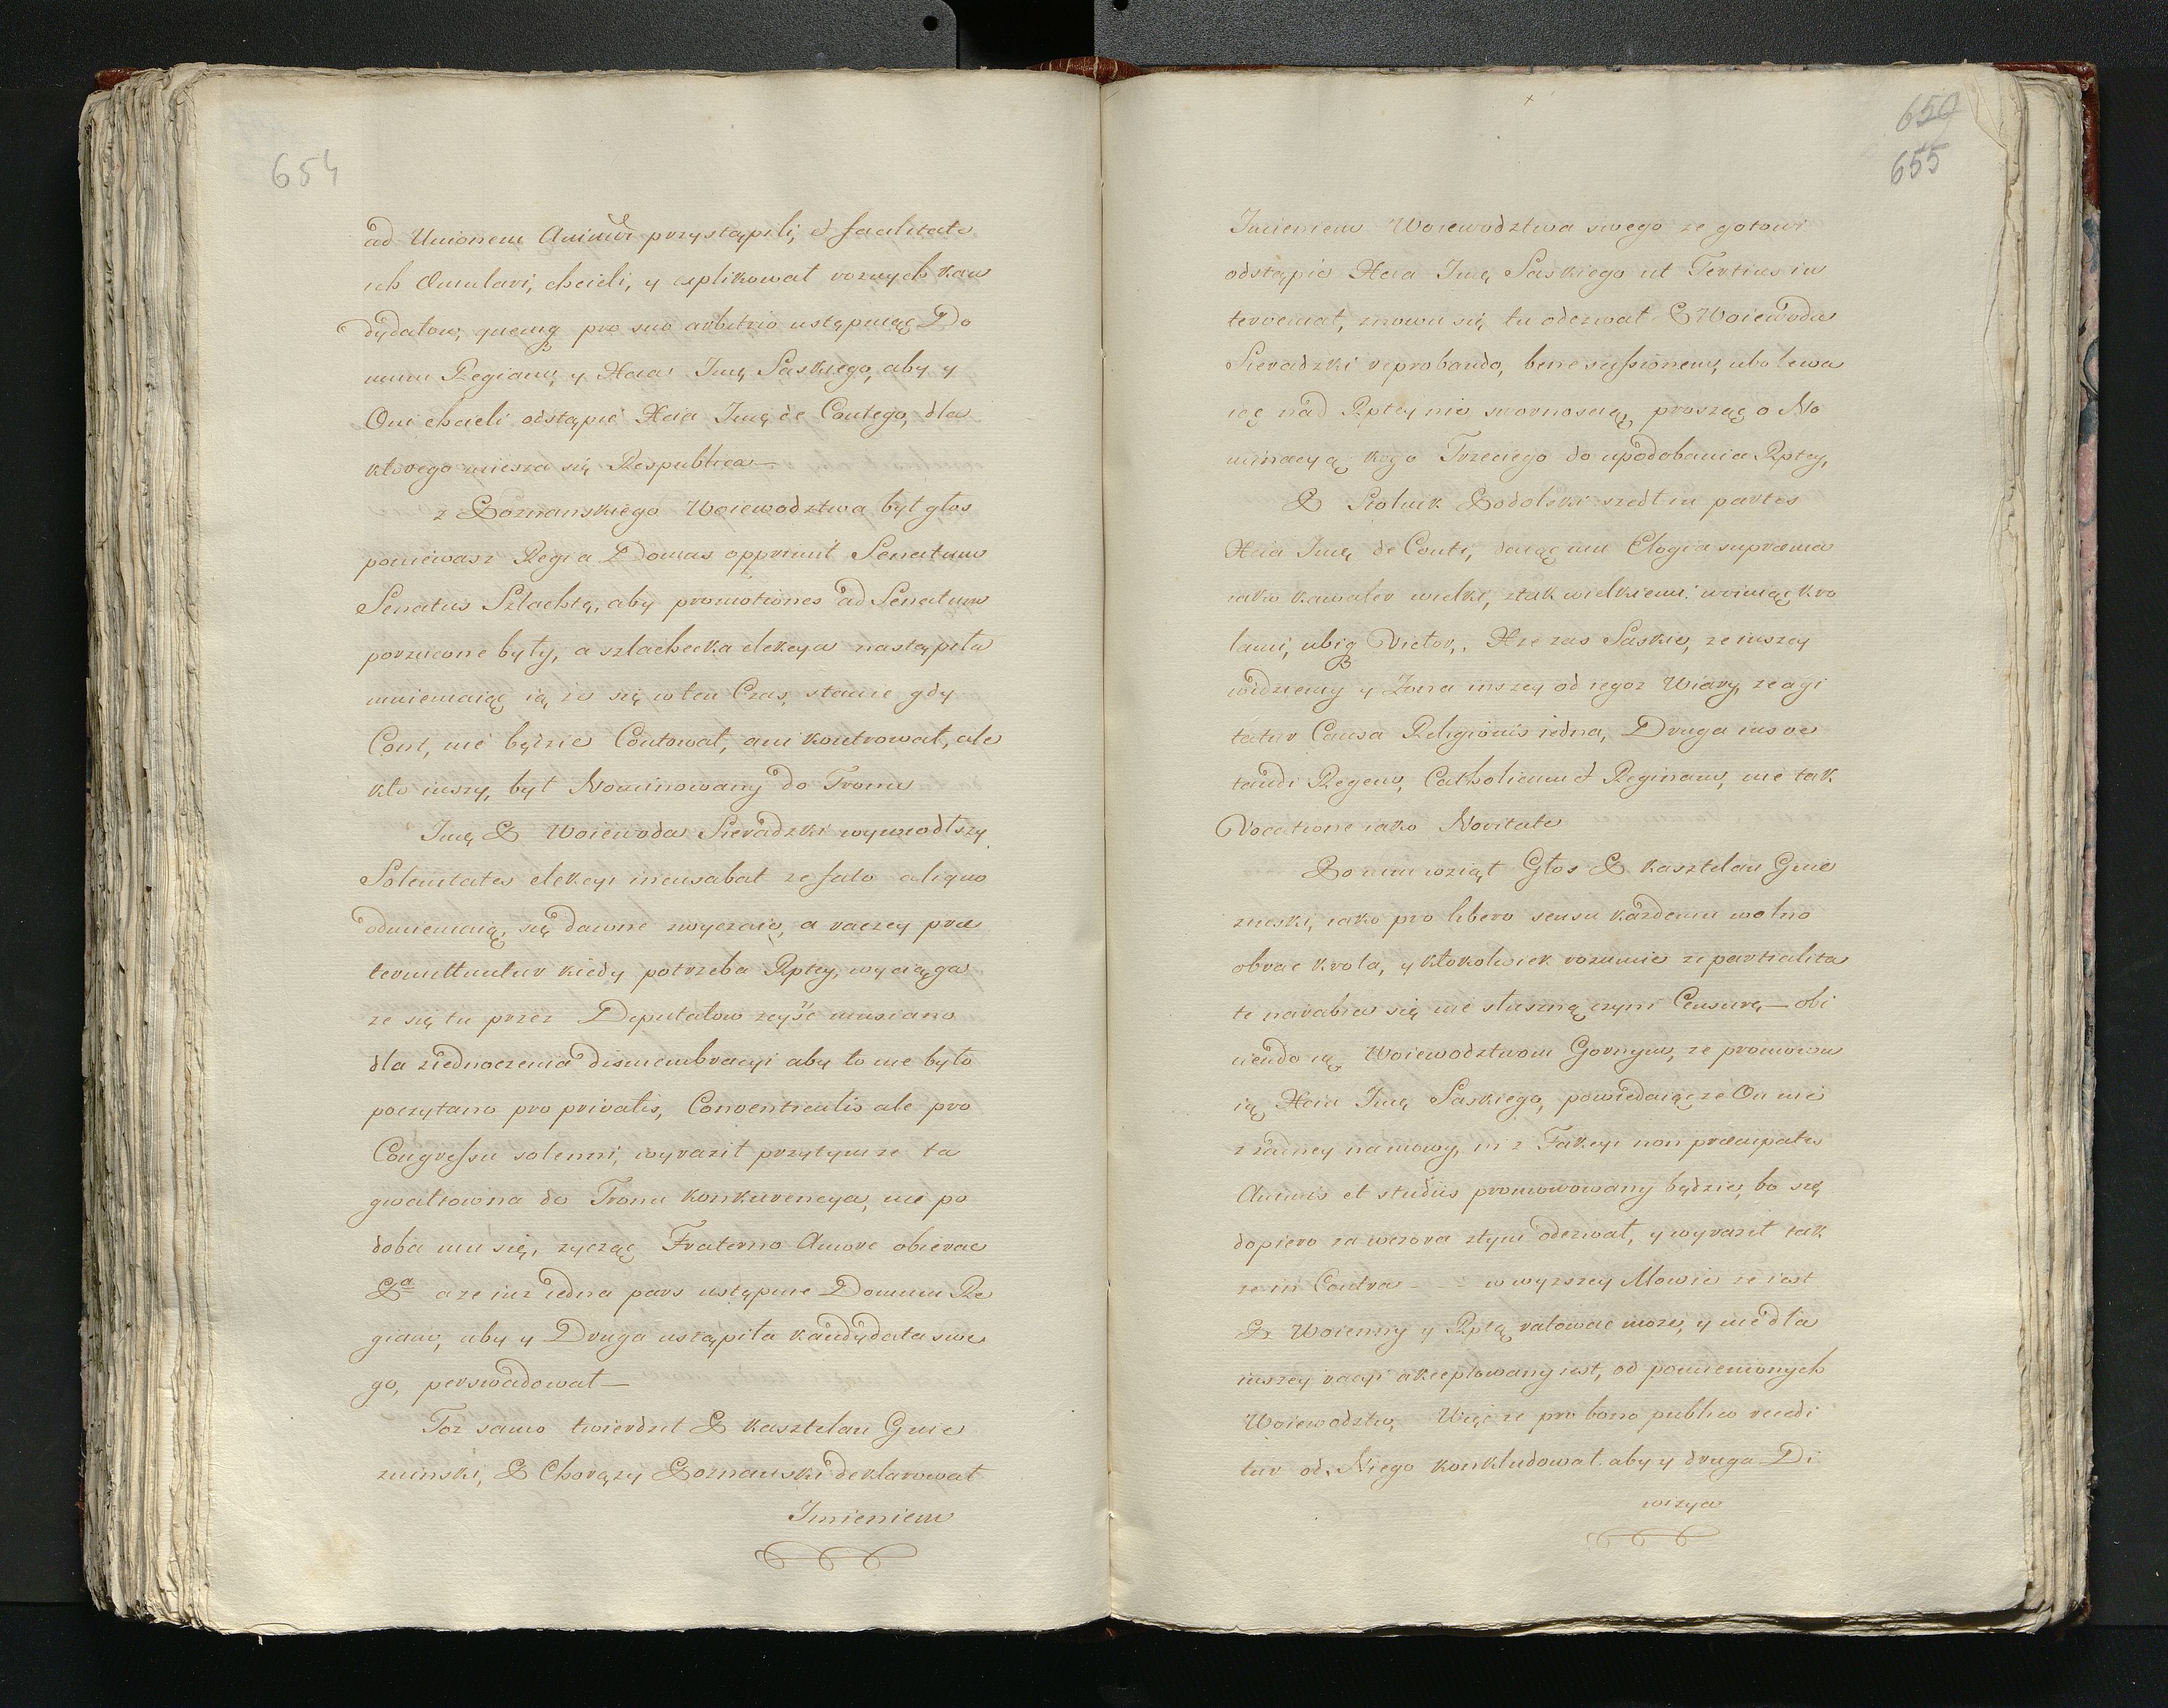 654
ad Unionem Animi przystąpili, & facilitate
ich Emulari, chcieli, y explikował roznych kan
dydatow, quemq pro suo arbitrio ustępuiąc Do
mum Regiam, y Xcia Imę Saskiego, aby y
Oni chcieli odstąpić Xcia Imę de Contego, dla
ktorego miesza się Respublica—
z Poznanskiego Woiewodztwa był głos
poniewasz Regia Domus opprimit Senatum
Senatus Szlachtę, aby promotiones ad Senatum
porzucone były, a szlachecka elekcya nastąpiła
mniemaiąc ią, iz się w ten Czas, stanie gdy
Cont, nie będzie Contował, ani kontrował, ale
kto inszy, był Nominowany do Tronu
Imę P Woiewoda Sieradzki wywiodłszy
Solenitates elekcyi incusabat ze fato aliquo
odmieniaią, się dawne zwyczaie, a raczey præ
termittuntur kiedy potrzeba Rptey, wyciąga
ze się tu przez Deputatow zeyść musiano
dla ziednoczenia dismembracyi aby to nie było
poczytano pro privatis, Conventiculis ale pro
Congressu solenni, wyraził przytym ze ta
gwałtowna do Tronu konkurencya, nie po
doba mu się, zycząc Fraterno Amore obierac
Pa a ze iuz iedna pars ustępuie Domum Re
giam, aby y Druga ustąpiła kandydata swe
go, perswadował—
Toz samo twierdził P kasztelan Gnie
znienski, P Chorązy Poznanski deklarował
Imieniem
650
655
Imieniem Woiewodztwa swego ze gotowi
odstąpic Xcia Imę Saskiego ut Tertius in
terveniat, znowu się tu odezwał P Woiewoda
Sieradzki reprobando, bene sessionem, ubolewa
iąc nad Rptey nie swornoscią, prosząc o No
minacyą kogo Trzeciego do upodobania Rptey,
P Stolnik Podolski szedł in partes
Xcia Imę de Conti, daiąc mu Elogia suprema
iako kawaler wielki, z tak wielkiemi woiuiąc kro
lami, ubiq Victor,. Xze zas Saskie, ze inszey
widziemy y Zona inszey od iegoz Wiary, ze agi
tatur Causa Religionis iedna, Druga ius ve
tandi Regem, Catholicum & Reginam, nie tak
Vocatione iako Novitate
Po nim wziął Głos P kasztelan Gnie
znieski, iako pro libero sensu kazdemu wolno
obrac krola, y ktokolwiek rozumie ze partialita
te narabia się nie słuszną czyni Censurę— obi
ciendo ią Woiewodztwom Gornym, ze promowu
ią Xcia Imę Saskiego, powiedaiąc ze On nie
z zadney namowy, ni z Fakcyi non præoccupatis
Animis et studiis promowowany będzie, bo się
dopiero za wczora z tym odezwał, y wyraził iak
ze in Contra - - - w wyzszey Mowie ze iest
P Woienny y Rptą ratowac moze, y nie dla
inszey racyi akceptowany iest, od pomienionych
Woiewodztw, Więc ze pro bono publico recedi
tur od Niego konkludował aby y druga Di
wizya